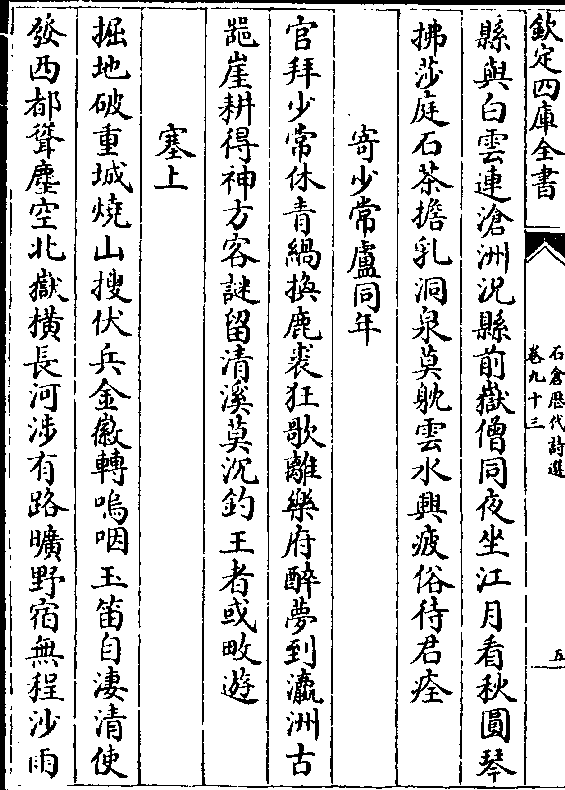 欽定四庫全書
石倉歷代詩選
卷九十三
五
縣與白雲連滄洲況縣前嶽僧同夜坐江月看秋圓琴
拂莎庭石茶擔乳洞泉莫躭雲水興疲俗待君痊
寄少常盧同年
官拜少常休青緺換鹿裘狂歌離樂府醉夢到瀛洲古
器崖耕得神方客謎留清溪莫沉釣王者或畋遊
塞上
掘地破重城燒山搜伏兵金徽轉嗚咽玉笛自淒清使
發西都聳塵空北嶽橫長河涉有路曠野宿無程沙雨